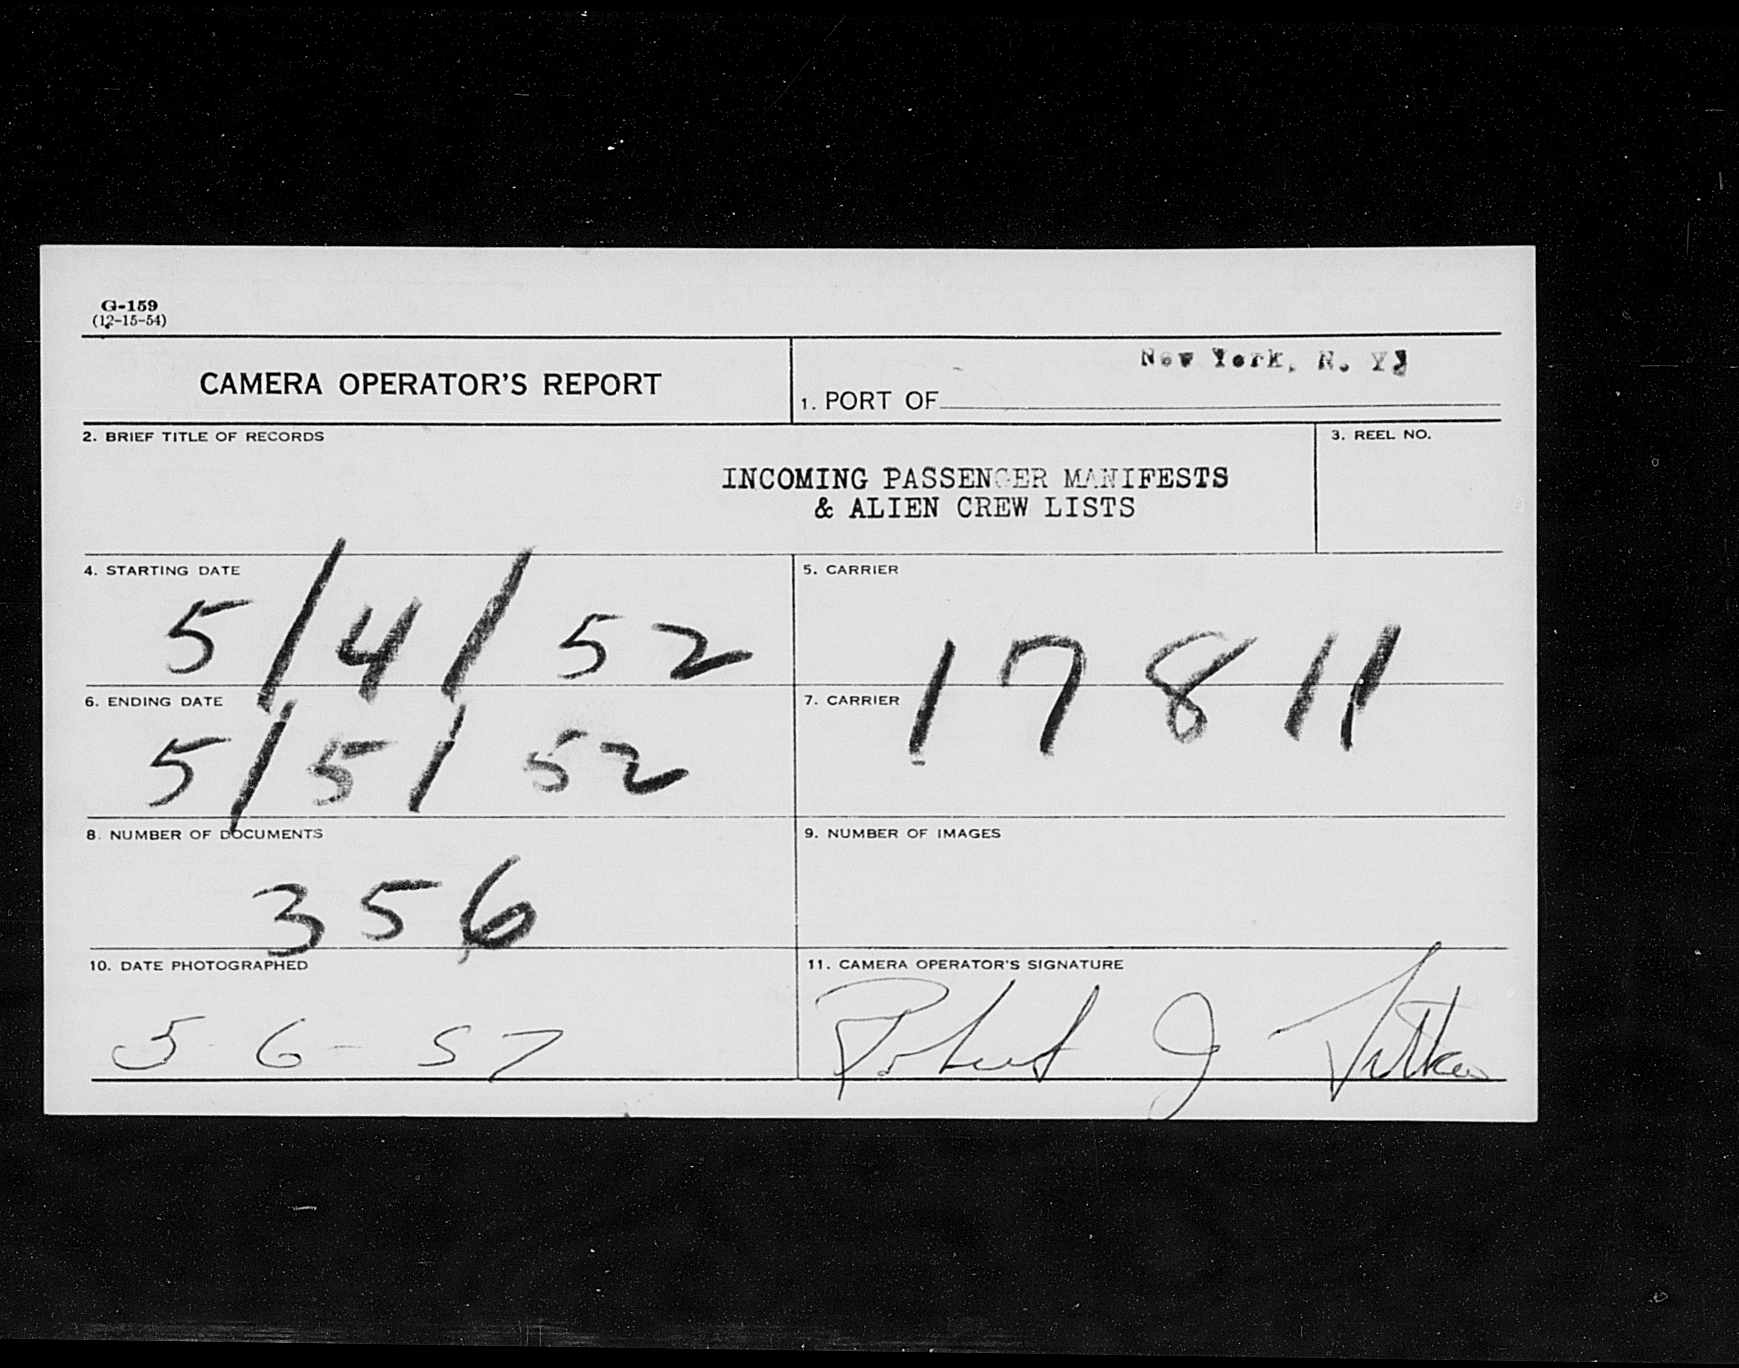 G-159
(12-15-54)
CAMERA OPERATOR'S REPORT
New York, N. Y.
1. PORT OF
2. BRIEF TITLE OF RECORDS
3. REEL NO.
INCOMING PASSENGER MANIFESTS
& ALIEN CREW LISTS
4. STARTING DATE
5/4/52
5. CARRIER
17811
6. ENDING DATE
5/5/52
7. CARRIER
8. NUMBER OF DOCUMENTS
356
9. NUMBER OF IMAGES
10. DATE PHOTOGRAPHED
5-6-57
11. CAMERA OPERATOR'S SIGNATURE
Robert J